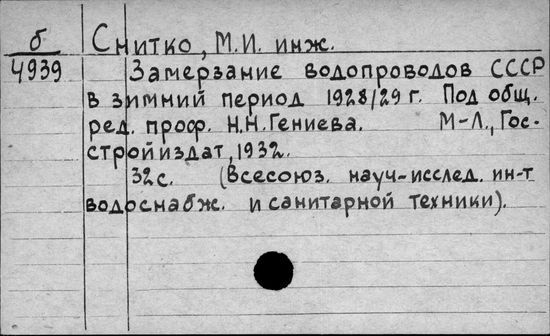 б
4939
Снитко, М.И. инж.
Замерзание водопроводов СССР
в зимний период 1928/29 г. Под общ.
ред. проф. Н.Н.Гениева. М-Л., Гос-
стройиздат, 1932.
32с. (Всесоюз. науч-исслед. ин-т
водоснабж. и санитарной техники).